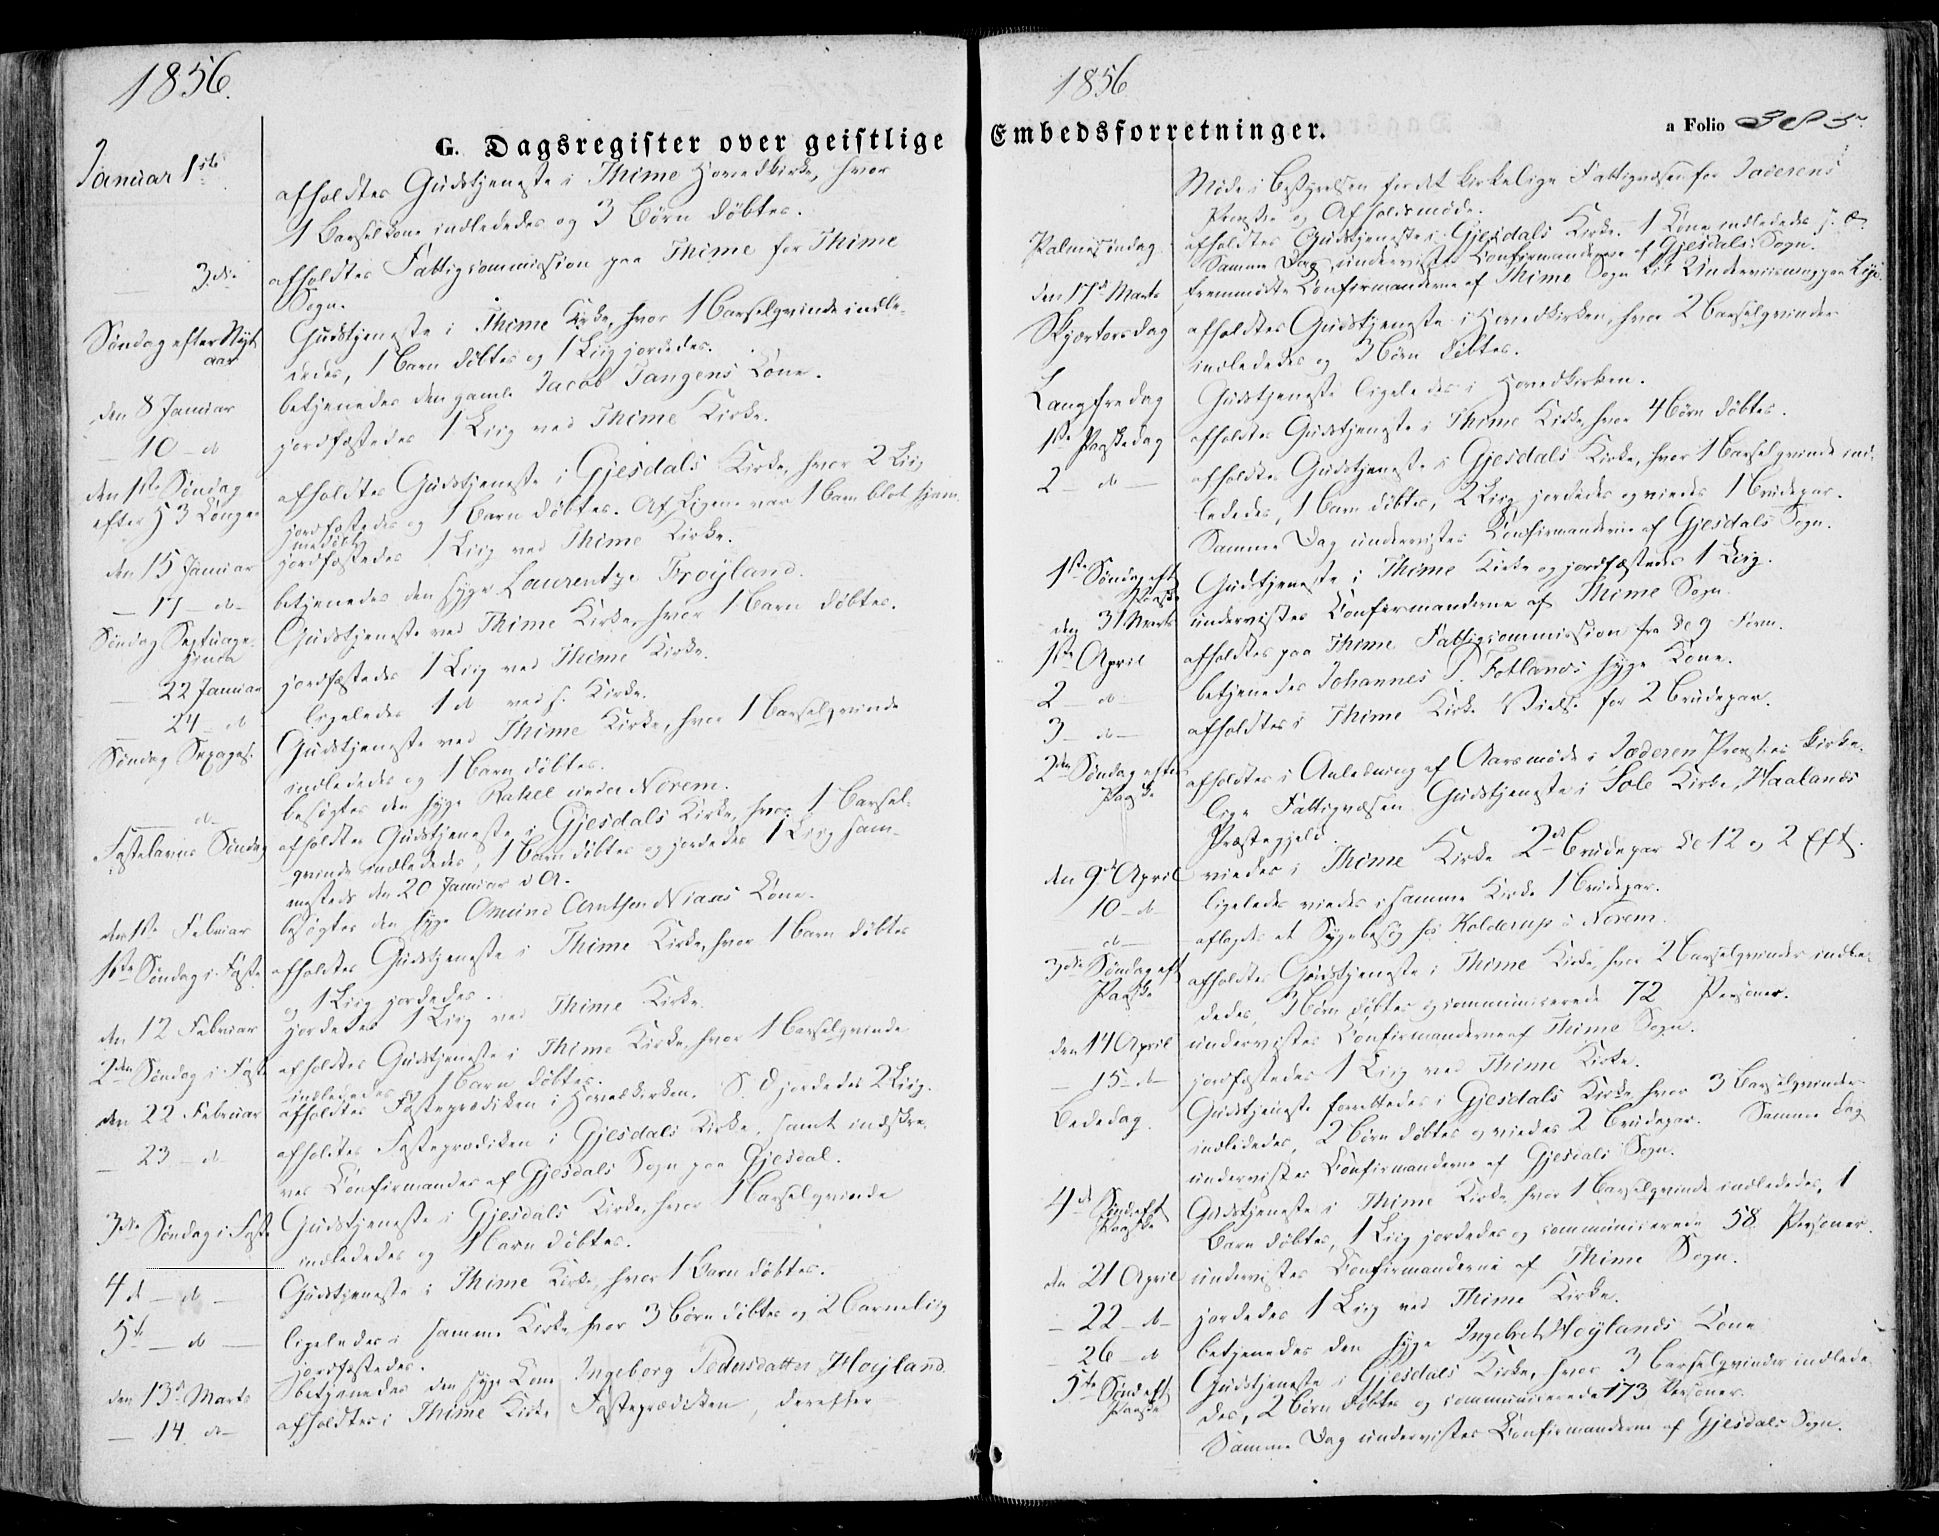 1856.
G. Dagsregister over geistlige
Januar 1ste afholdtes Gudstjeneste i Thime Hovedkirke, hvor
1 Barselkone indlededes og 3 Børn døbtes.
— 3die afholdtes Fattigcommission paa Thime for Thime
Sogn.
Søndag efter Nyt Gudstjeneste i Thime Kirke, hvor 1 Barselqvinde indle-
aar dedes, 1 Barn døbtes og 1 Liig jordedes.
den 8 Januar betjenedes den gamle Jacob Tangens Kone.
— 10 — d jordfæstedes 1 Liig ved Thime Kirke.
den 1ste Søndag afholdtes Gudstjeneste i Gjesdals Kirke, hvor 2 Liig
efter H 3 Konger jordfæstedes og 1 Barn døbtes. Af Ligene var 1 Barn blot hjem-
medøbt
den 15 Januar jordfæstedes 1 Liig ved Thime Kirke.
— 17 — d — betjenedes den syge Laurentze Frøyland.
Søndag Septuage- Gudstjeneste ved Thime Kirke, hvor 1 Barn døbtes.
sima
— 22 Januar jordfæstedes 1 Liig ved Thime Kirke.
— 24 — d ligeledes 1 d ved s. Kirke.
Søndag Sexages: Gudstjeneste ved Thime Kirke, hvor 1 Barselqvinde
indlededes og 1 Barn døbtes.
— d — besøgtes den syge Rakel under Norem.
Fastelavns Søndag afholdtes Gudstjeneste i Gjesdals Kirke, hvor 1 Barsel-
qvinde indlededes, 1 Barn døbtes og jordedes 1 Liig
den 20 Januar d A.
den 1ste Februar besøgtes den syge Omund Arntsen Niaas Kone.
1ste Søndag i Faste afholdtes Gudstjeneste i Thime Kirke, hvor 1 Barn døbtes
og 1 Liig jordedes.
den 12 Februar jordedes 1 Liig ved Thime Kirke
2den Søndag i Faste afholdtes Gudstjeneste i Thime Kirke, hvor 1 Barselqvinde
indlededes og 1 Barn døbtes.
den 22 Februar afholdtes Fasteprædiken i Hovedkirken. S. D jordedes 2 Liig.
— 23 — d afholdtes Fasteprædiken i Gjesdals Kirke, samt indskre-
ves Confirmander af Gjesdals Sogn paa Gjesdal.
3die Søndag i Faste Gudstjeneste i Gjesdals Kirke, hvor 1 Barselqvinde
indlededes og 1 Barn døbtes.
4d — d — Gudstjeneste i Thime Kirke, hvor 1 Barn døbtes.
5te — d — ligeledes i samme Kirke hvor 3 Børn døbtes og 2 Barnelig
jordfæstedes.
den 13d Marts betjenedes den syge Kone Ingeborg Pedersdatter Høiland
— 14 d — afholdtes i Thime Kirke Fasteprædiken, derefter
1856
Embedsforretninger.
a Folio 385.
Møde i Bestyrelsen for det kirkelige Fattigvæsen for Jæderens
Provstie og Afholdsmøde.
Palmesøndag afholdtes Gudstjeneste i Gjesdals Kirke. 1 Kone indlededes
Samme Dag undervistes Confirmanderne af Gjesdals Sogn.
den 17d Marts fremmødte Confirmanderne af Thime Sogn til Underviisning paa Lye
Skjærtorsdag afholdtes Gudstjeneste i Hovedkirken, hvor 2 Barselqvinder
indlededes og 3 Børn døbtes.
Langfredag Gudstjeneste ligeledes i Hovedkirken.
1ste Paaskedag afholdtes Gudstjeneste i Thime Kirke, hvor 4 Børn døbtes.
2 — d — afholdtes Gudstjeneste i Gjesdals Kirke, hvor 1 Barselqvinde ind-
lededes, 1 Barn døbtes, 2 Liig jordedes og viedes 1 Brudepar.
Samme Dag undervistes Confirmanderne af Gjesdals Sogn.
1ste Søndag eft Gudstjeneste i Thime Kirke og jordfæstedes 1 Liig.
Paaske
den 31 Marts undervistes Confirmanderne af Thime Sogn.
1ste April afholdtes paa Thime Fattigcommission fra Kl 9 Form.
2 — d — betjenedes Johannes P. Fotlands syge Kone.
3 — d — afholdtes i Thime Kirke Vielse for 2 Brudepar.
2den Søndag efter afholdtes i Anledning af Aarsmøde i Jæderens Provsties kirke-
Paaske lige Fattigvæsen Gudstjeneste i Sole Kirke, Haalands
Præstegjeld.
den 9d April viedes i Thime Kirke 2 Brudepar Kl 12 og 2 Eft.
10 — d — ligeledes viedes i samme Kirke 1 Brudepar.
— d — aflagdes et Sygebesøg hos Kolderup i Norem.
3die Søndag eft afholdtes Gudstjeneste i Thime Kirke, hvor 2 Barselqvinder indle-
Paaske dedes, 3 Børn døbtes og communicerede 72 Personer.
den 14 April undervistes Confirmanderne af Thime Sogn.
— 15 — d — jordfæstedes 1 Liig ved Thime Kirke.
Bededag. Gudstjeneste forrettedes i Gjesdals Kirke, hvor 3 Barselqvinder
indlededes, 2 Børn døbtes og viedes 2 Brudepar. Samme Dag
undervistes Confirmanderne af Gjesdals Sogn.
4d Sønd eft Gudstjeneste i Thime Kirke, hvor 1 Barselqvinde indlededes, 1
Paaske Barn døbtes, 1 Liig jordedes og communicerede 58 Personer.
den 21 April undervistes Confirmanderne af Thime Sogn.
— 22 — d — jordedes 1 Liig ved Thime Kirke.
— 26 — d betjenedes den syge Ingebret Høylands Kone
5te Sønd eft Gudstjeneste i Gjesdals Kirke, hvor 3 Barselqvinder indlede-
Paaske des, 2 Børn døbtes og communicerede 173 Personer.
Samme Dag undervistes Confirmanderne af Gjesdals Sogn.